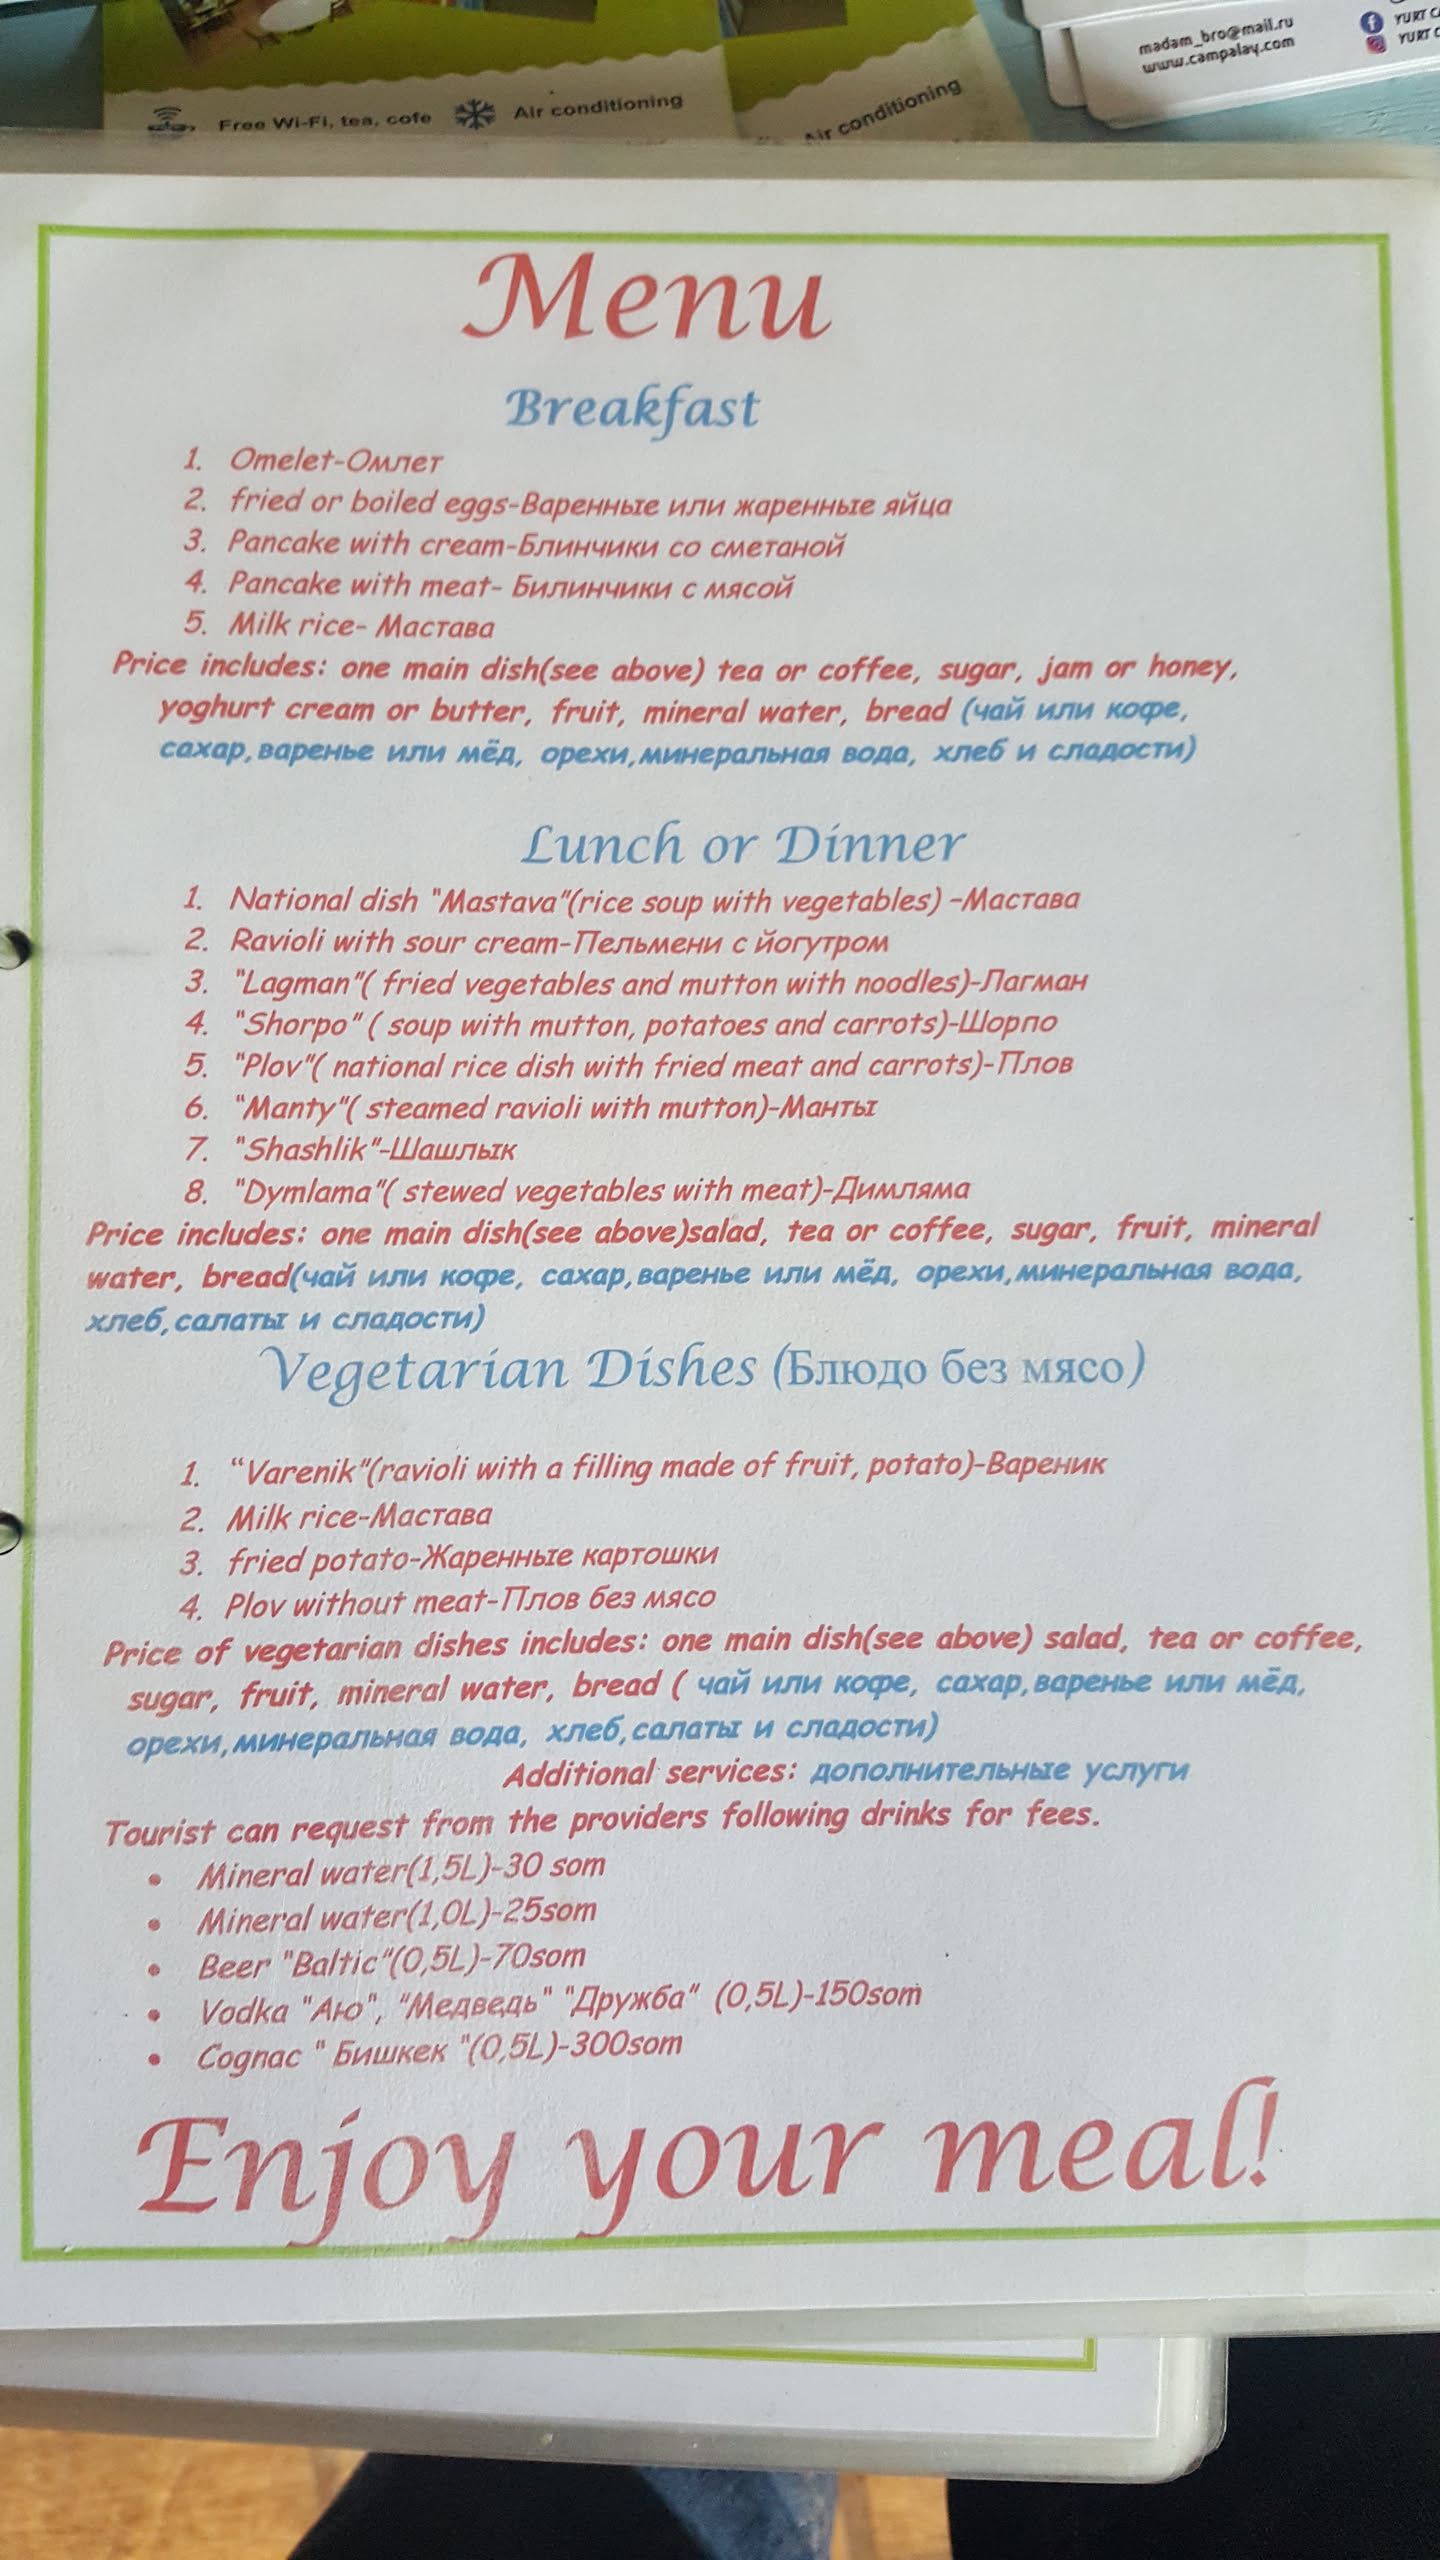 madam_bro@mail.ru
www.campalay.com
YURT
YURT
Free Wi-Fi, tea, cofe
Air conditioning
Air conditioning
Menu
Breakfast
1. Omelet-Омлет
2. fried or boiled eggs-Варенные или жаренные яйца
3. Pancake with cream-Блинчики со сметаной
4. Pancake with meat- Билинчики с мясой
5. Milk rice- Мастава
Price includes: one main dish(see above) tea or coffee, sugar, jam or honey,
yoghurt cream or butter, fruit, mineral water, bread (чай или кофе,
сахар,варенье или мёд, орехи,минеральная вода, хлеб и сладости)
Lunch or Dinner
1. National dish "Mastava"(rice soup with vegetables) –Мастава
2. Ravioli with sour cream-Пельмени с йогутром
3. "Lagman"( fried vegetables and mutton with noodles)-Лагман
4. "Shorpo" ( soup with mutton, potatoes and carrots)-Шорпо
5. "Plov"( national rice dish with fried meat and carrots)-Плов
6. "Manty"( steamed ravioli with mutton)-Манты
7. "Shashlik"-Шашлык
8. "Dymlama"( stewed vegetables with meat)-Димляма
Price includes: one main dish(see above)salad, tea or coffee, sugar, fruit, mineral
water, bread(чай или кофе, сахар,варенье или мёд, орехи,минеральная вода,
хлеб,салаты и сладости)
Vegetarian Dishes (Блюдо без мясо)
1. “Varenik"(ravioli with a filling made of fruit, potato)-Вареник
2. Milk rice-Мастава
3. fried potato-Жаренные картошки
4. Plov without meat-Плов без мясо
Price of vegetarian dishes includes: one main dish(see above) salad, tea or coffee,
sugar, fruit, mineral water, bread ( чай или кофе, сахар,варенье или мёд,
орехи,минеральная вода, хлеб,салаты и сладости)
Additional services: дополнительные услуги
Tourist can request from the providers following drinks for fees.
• Mineral water(1,5L)-30 som
• Mineral water(1,0L)-25som
• Beer "Baltic"(0,5L)-70som
• Vodka "Аю", "Медведь" "Дружба" (0,5L)-150som
• Cognac " Бишкек "(0,5L)-300som
Enjoy your meal!